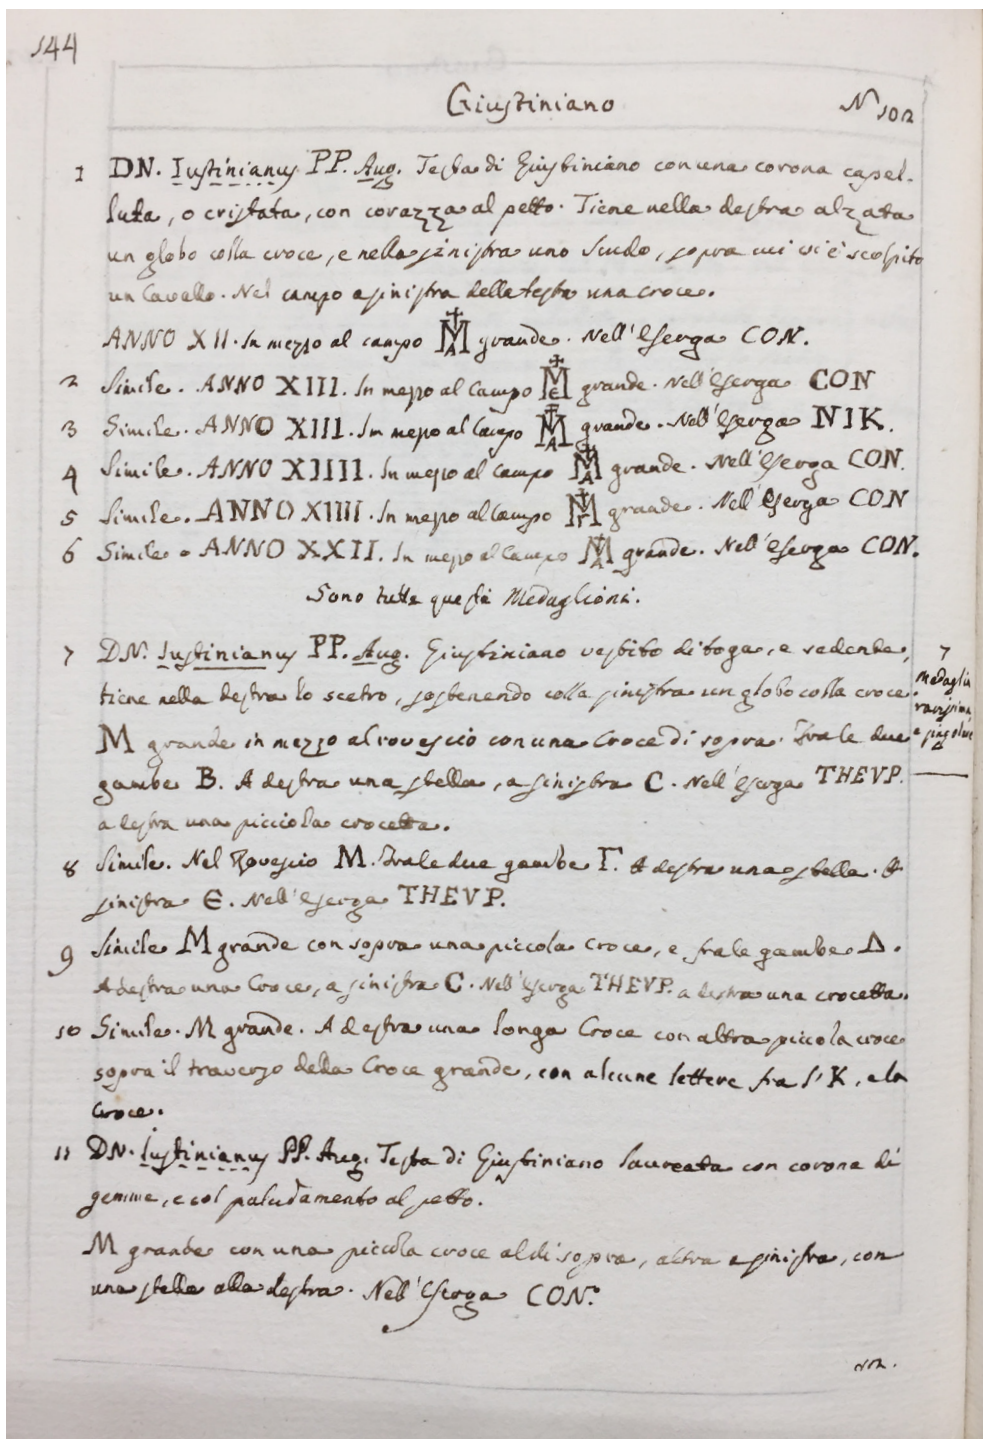 144
Giustiniano
N 102
1 DN. Iustinianus PP. Aug. Testa di Giustiniano con una corona capel-
luta, o cristata, con corazza al petto. Tiene nella destra alzata
un globo colla croce, e nella sinistra uno Scudo, sopra cui vi è scolpito
un Cavallo. Nel campo a sinistra della testa una croce.
ANNO XII. In mezzo al campo M A grande. Nell' Eserga CON.
2 Simile. ANNO XIII. In mezzo al Campo M Є grande. Nell' Eserga CON
3 Simile. ANNO XIII. In mezzo al Campo M A grande. Nell' Eserga NIK.
4 Simile. ANNO XIIII. In mezzo al campo M A grande. Nell' Eserga CON.
5 Simile. ANNO XIIII. In mezzo al Campo M Γ grande. Nell' Eserga CON
6 Simile. ANNO XXII. In mezzo al Campo M A grande. Nell' Eserga CON.
Sono tutte queste Medaglioni.
7 DN. Iustinianus PP. Aug. Giustiniano vestito di toga, e sedente,
tiene nella destra lo scetro, sostenendo colla sinistra un globo colla croce.
M grande in mezzo al rovescio con una Croce di sopra. Tra le due
gambe B. A destra una stella, a sinistra C. Nell' Eserga THEVP.
a destra una picciola crocetta.
7
Medaglia
rarissima
e singolare
8 Simile. Nel Rovescio M. Tra le due gambe Γ. A destra una stella. A
sinistra Є. Nell' Eserga THEVP.
9 Simile M grande con sopra una piccola Croce, e fra le gambe Δ.
A destra una Croce, a sinistra C. Nell' Eserga THEVP. a destra una crocetta.
10 Simile. M grande. A destra una longa Croce con altra piccola croce
sopra il traverso della Croce grande, con alcune lettere fra l' K, e la
Croce.
11 DN. Iustinianus PP. Aug. Testa di Giustiniano laureata con corona di
gemme, e col paludamento al petto.
M grande con una piccola croce al di sopra, altra a sinistra, con
una stella alla destra. Nell' Eserga CON.
12.